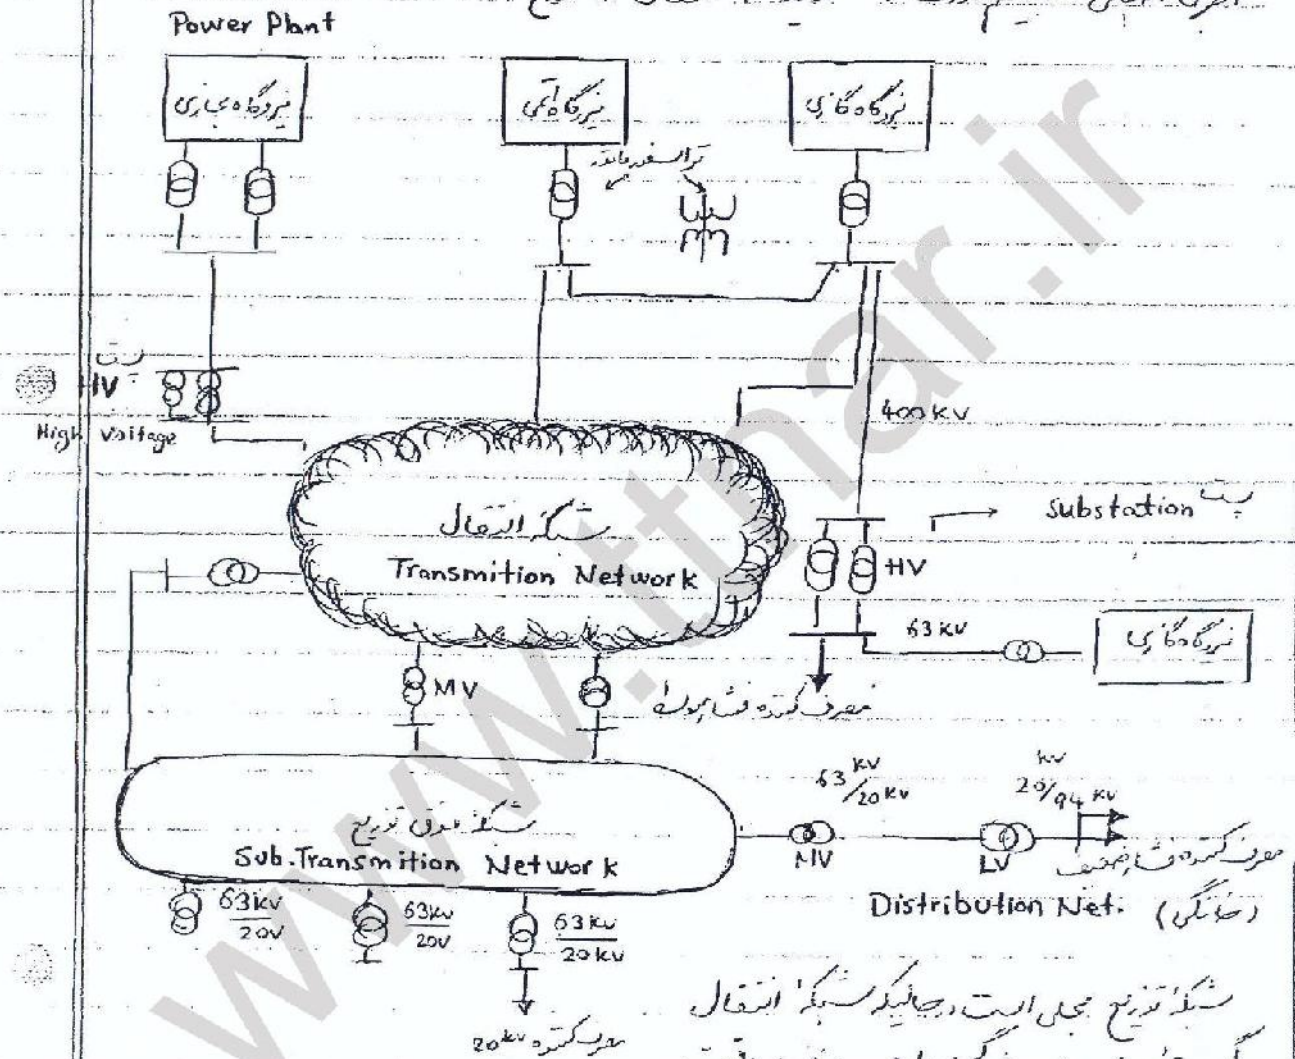 Power Plant
نیروگاه بخاری
نیروگاه اتمی
نیروگاه گازی
ترانسفورماتور
پست
HV
High Voltage
400 KV
شبکهٔ انتقال
Transmition Network
Substation پست
HV
63 KV
نیروگاه گازی
MV
مصرف کننده فشار
شبکهٔ فوق توزیع
Sub.Transmition Network
63 KV/20 KV
MV
KV 20/94 KV
LV
مصرف کننده فشار ضعیف
(خانگی)
Distribution Net.
63KV/20V
63KV/20V
63KV/20KV
مصرف کننده 20KV
شبکهٔ توزیع محلی است درحالیکه شبکهٔ انتقال
www.tnar.ir